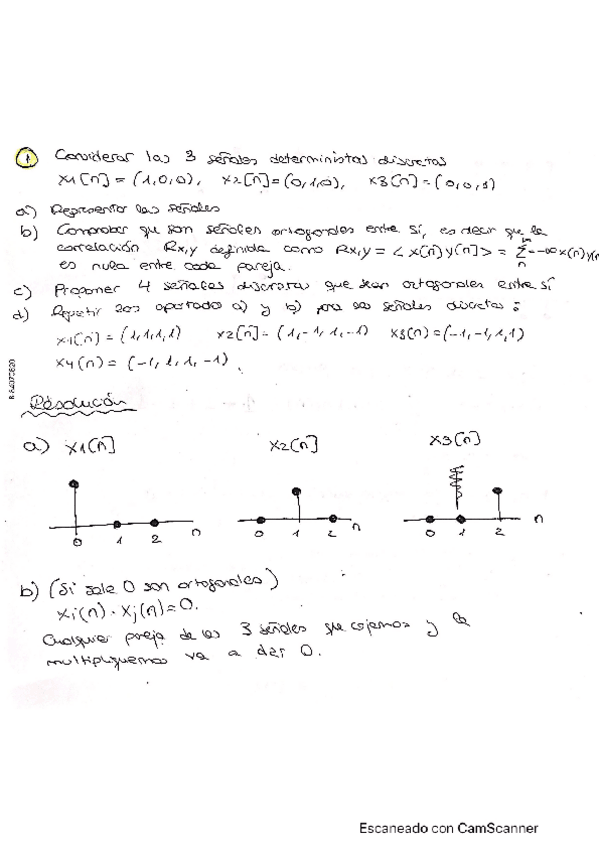 1 Considerar las 3 señales deterministas discretas
x1[n] = (1,0,0), x2[n]=(0,1,0), x3[n]=(0,0,1)
a) Representar las señales
b) Comprobar que son señales ortogonales entre sí, es decir que la
correlación Rx,y definida como Rx,y = < x(n) y(n) > = Σ -∞ x(n) y(n
es nula entre cada pareja.
c) Proponer 4 señales discretas que sean ortogonales entre sí
d) Repetir los apartado a) y b) para las señales discretas:
x1(n) = (1,1,1,1) x2[n]= (1,-1,1,-1) x3(n)=(-1,-1,1,1)
x4(n) = (-1,1,1,-1).
Résolución
a) x1[n] x2[n] x3[n]
0 1 2 n 0 1 2 n 0 1 2 n
b) (Si sale 0 son ortogonales)
xi(n) · xj(n)=0.
Cualquier pareja de las 3 señales que cojamos y la
multipliquemos va a dar 0.
Escaneado con CamScanner